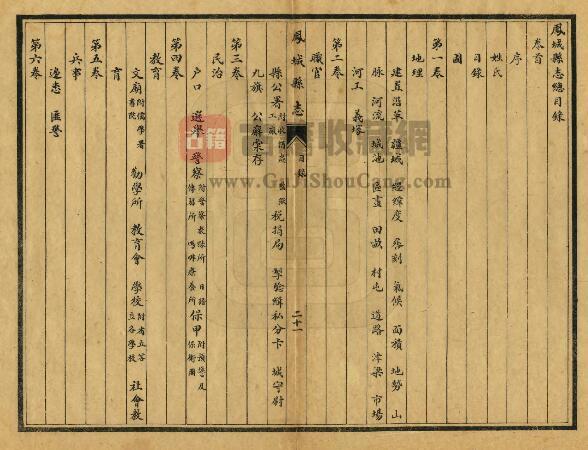 鳳城縣志總目錄
卷首
序
姓氏
目錄
圖
第一卷
地理
建置沿革 疆域 經緯度 晷刻 氣候 面積 地勢 山
脉 河流 城池 區畫 田畝 村屯 道路 津梁 市場
河工 義塚
第二卷
職官
縣公署 稅捐局 掣驗緝私分卡 城守尉
九旗 公廨案存
鳳城縣志
目錄
二十一
第三卷
民治
户口 選舉 警察 附警察教練所 日語傳習所 嗎啡療養所 保甲 附預警及保衛團
第四卷
教育
文廟 附儒學署書院 勸學所 教育會 學校 附省立等立各學校 社會教
育
第五卷
兵事
邊患 匪警
第六卷
古籍收藏網
www.GuJiShouCang.com